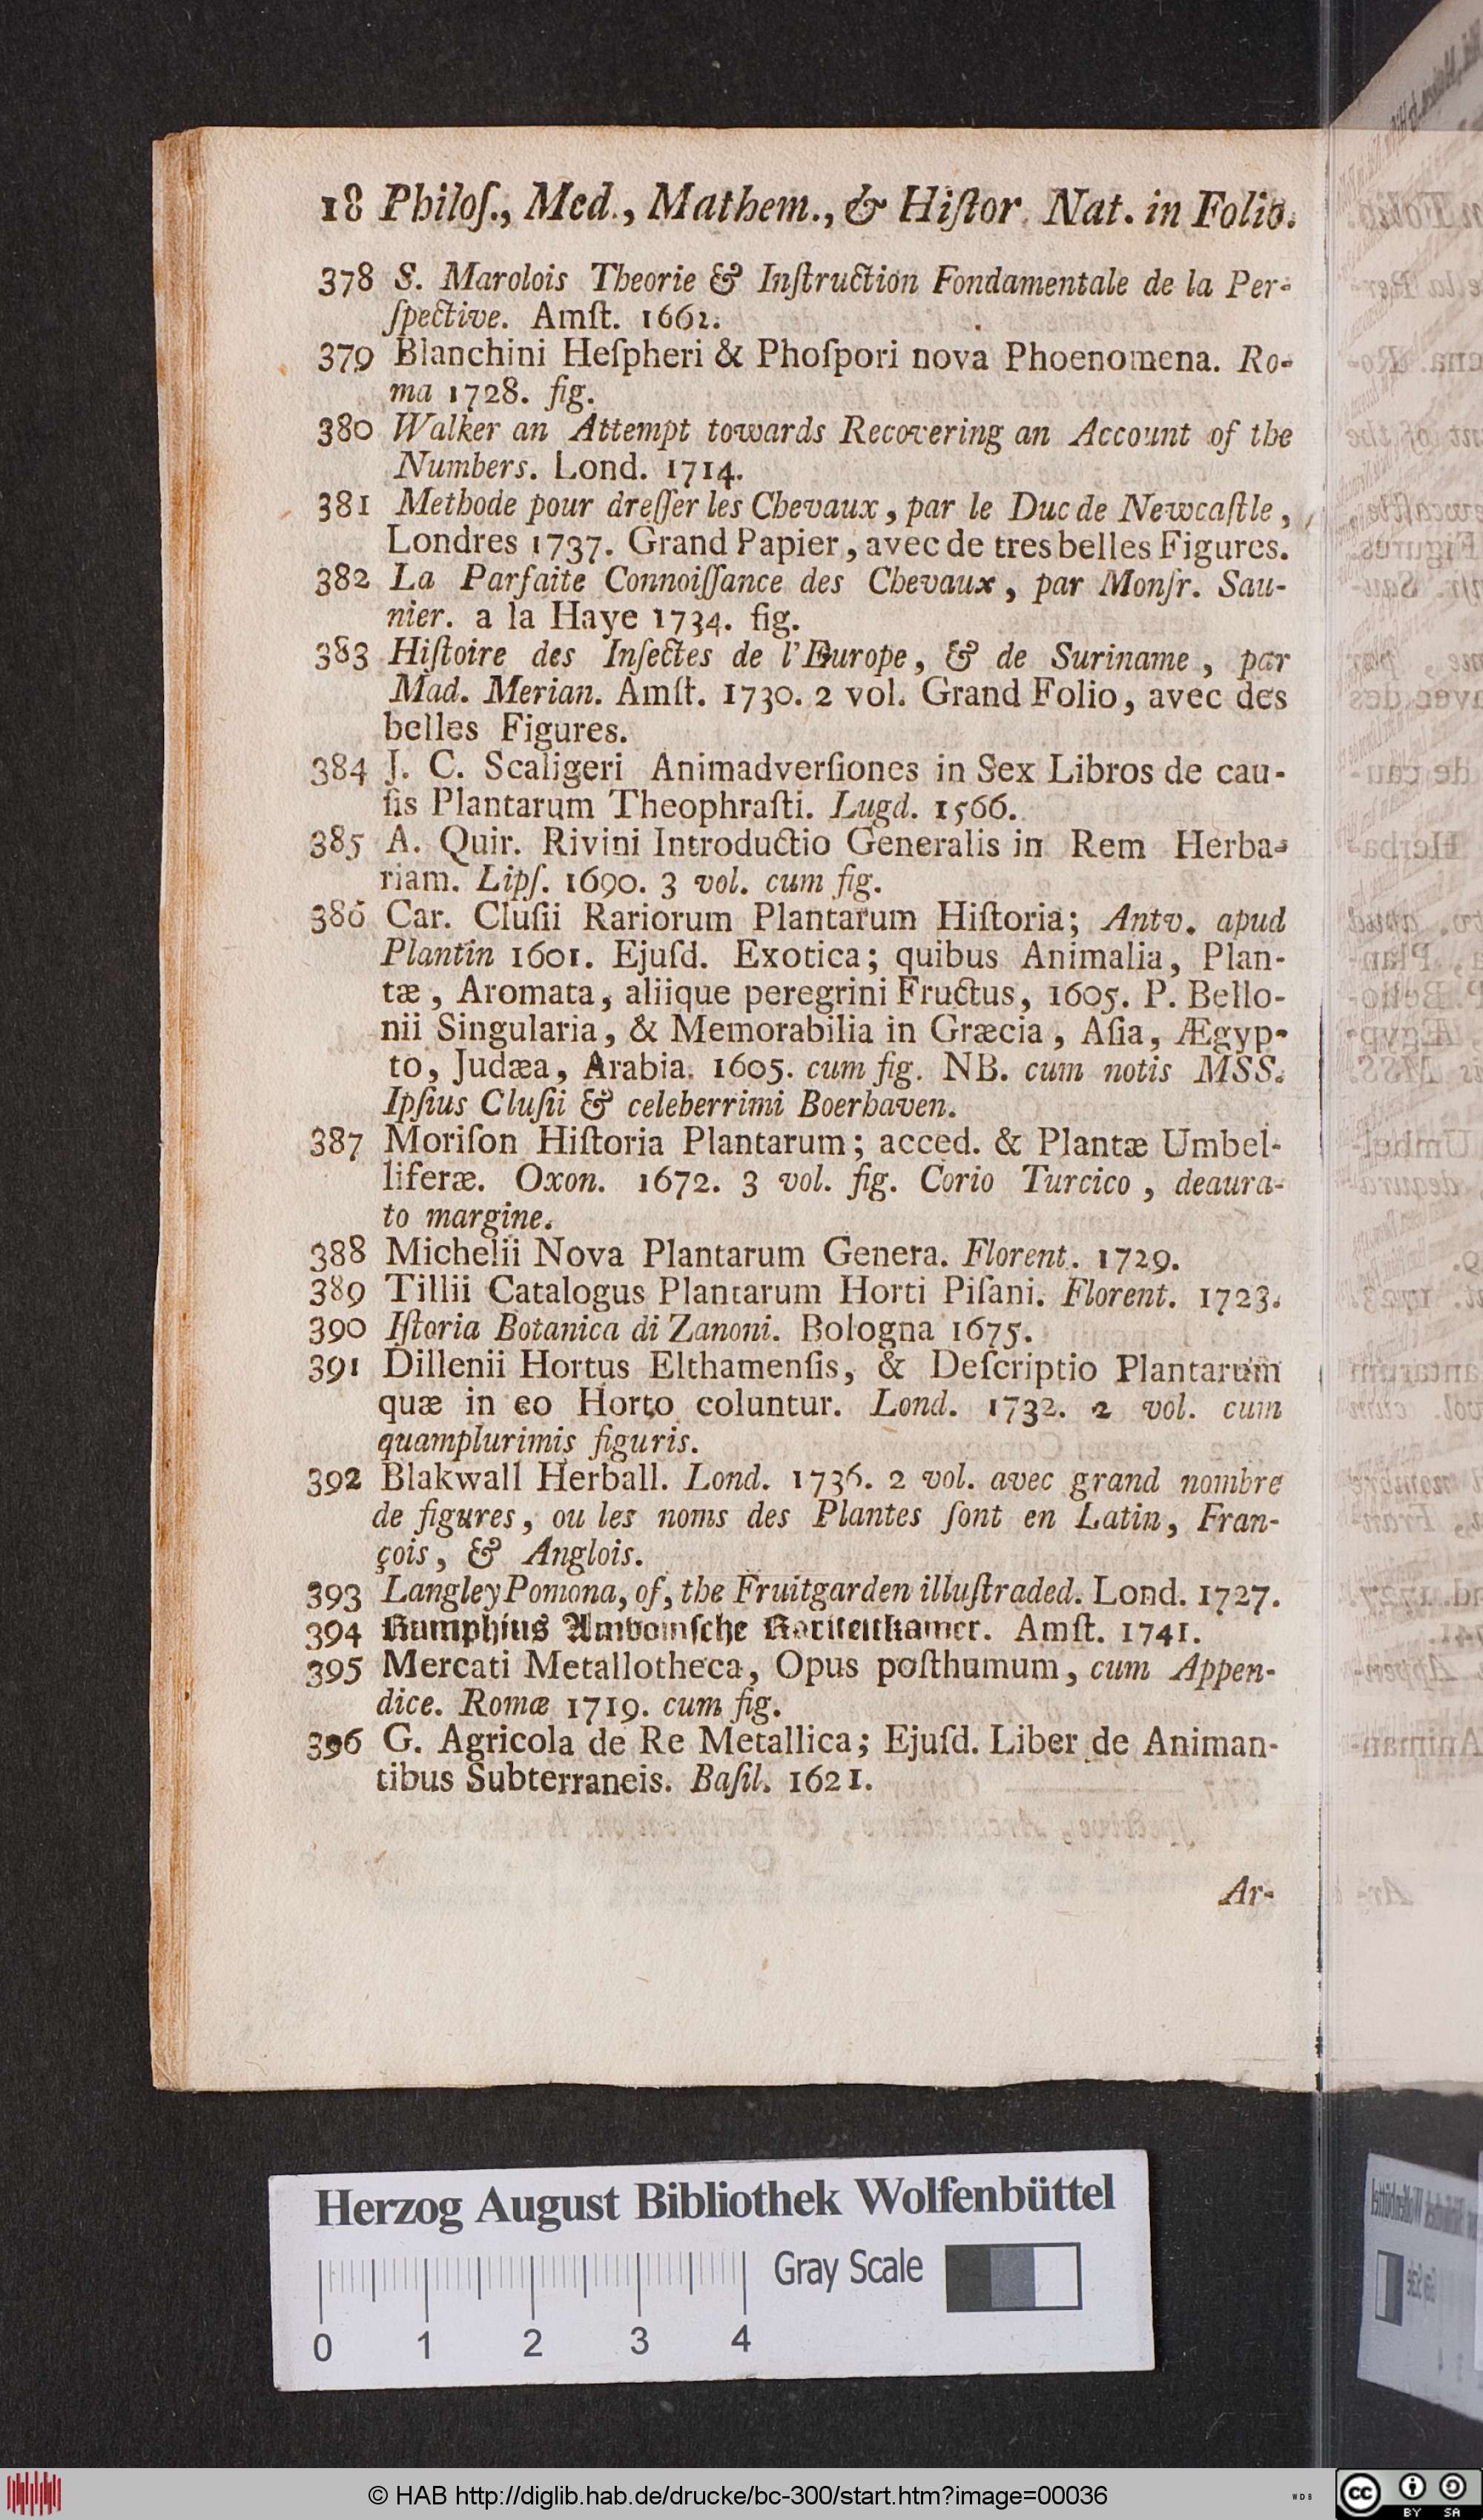 18 Philoſ., Med., Mathem., & Hiſtor. Nat. in Folio.
378 S. Marolois Theorie & Inſtruction Fondamentale de la Per-
ſpective. Amſt. 1662.
379 Blanchini Heſpheri & Phoſpori nova Phoenomena. Ro-
ma 1728. fig.
380 Walker an Attempt towards Recovering an Account of the
Numbers. Lond. 1714.
381 Methode pour dreſſer les Chevaux, par le Duc de Newcaſtle,
Londres 1737. Grand Papier, avec de tres belles Figures.
382 La Parfaite Connoiſſance des Chevaux, par Monſr. Sau-
nier. a la Haye 1734. fig.
383 Hiſtoire des Inſectes de l'Europe, & de Suriname, par
Mad. Merian. Amſt. 1730. 2 vol. Grand Folio, avec des
belles Figures.
384 J. C. Scaligeri Animadverſiones in Sex Libros de cau-
ſis Plantarum Theophraſti. Lugd. 1566.
385 A. Quir. Rivini Introductio Generalis in Rem Herba-
riam. Lipſ. 1690. 3 vol. cum fig.
386 Car. Cluſii Rariorum Plantarum Hiſtoria; Antv. apud
Plantin 1601. Ejuſd. Exotica; quibus Animalia, Plan-
tæ, Aromata, aliique peregrini Fructus, 1605. P. Bello-
nii Singularia, & Memorabilia in Græcia, Aſia, Ægyp-
to, Judæa, Arabia. 1605. cum fig. NB. cum notis MSS.
Ipſius Cluſii & celeberrimi Boerhaven.
387 Moriſon Hiſtoria Plantarum; acced. & Plantæ Umbel-
liferæ. Oxon. 1672. 3 vol. fig. Corio Turcico, deaura-
to margine.
388 Michelii Nova Plantarum Genera. Florent. 1729.
389 Tillii Catalogus Plantarum Horti Piſani. Florent. 1723.
390 Iſtoria Botanica di Zanoni. Bologna 1675.
391 Dillenii Hortus Elthamenſis, & Deſcriptio Plantarum
quæ in eo Horto coluntur. Lond. 1732. 2 vol. cum
quamplurimis figuris.
392 Blakwall Herball. Lond. 1736. 2 vol. avec grand nombre
de figures, ou les noms des Plantes ſont en Latin, Fran-
çois, & Anglois.
393 Langley Pomona, of, the Fruitgarden illuſtraded. Lond. 1727.
394 Rumphius Amboinſche Rariteitkamer. Amſt. 1741.
395 Mercati Metallotheca, Opus poſthumum, cum Appen-
dice. Romæ 1719. cum fig.
396 G. Agricola de Re Metallica; Ejuſd. Liber de Animan-
tibus Subterraneis. Baſil. 1621.
Ar-
Herzog August Bibliothek Wolfenbüttel
Gray Scale
0 1 2 3 4
© HAB http://diglib.hab.de/drucke/bc-300/start.htm?image=00036
WDB
CC BY SA